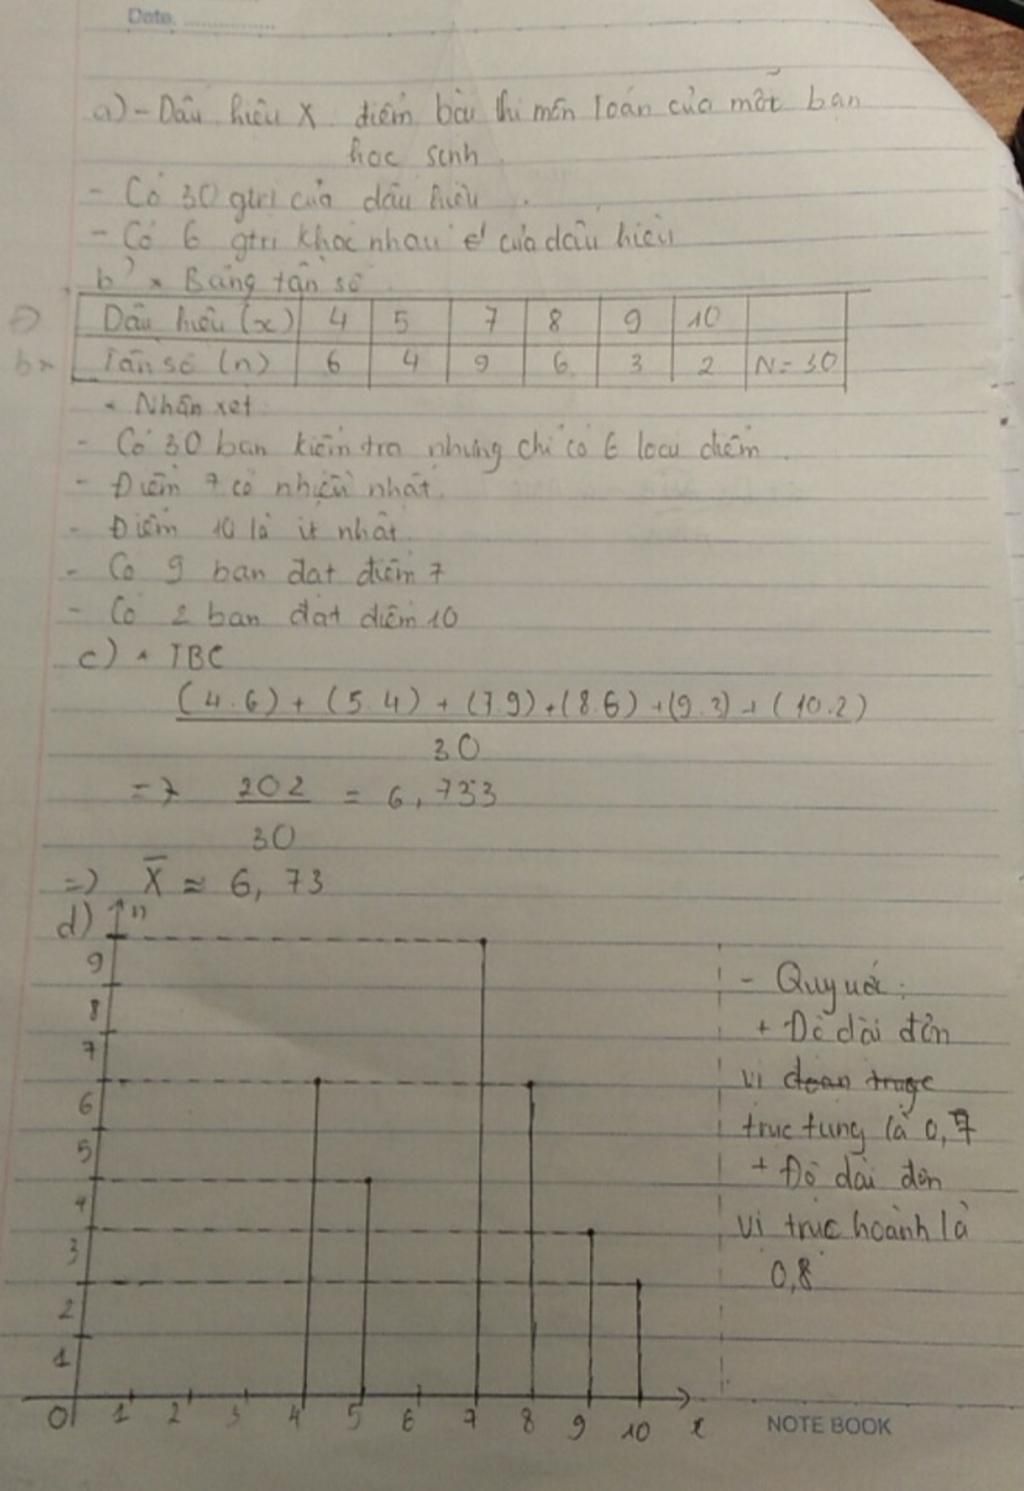 Date.
a) - Dấu hiệu X điểm bài thi môn Toán của mỗi bạn
học sinh.
- Có 30 gtri của dấu hiệu.
- Có 6 gtri khác nhau của dấu hiệu
b) * Bảng tần số
Dấu hiệu (x) 4 5 7 8 9 10
Tần số (n) 6 4 9 6 3 2 N = 30
* Nhận xét
- Có 30 bạn kiểm tra nhưng chỉ có 6 loại điểm.
- Điểm 7 có nhiều nhất.
- Điểm 10 là ít nhất.
- Có 9 bạn đạt điểm 7
- Có 2 bạn đạt điểm 10
c) * TBC
(4.6) + (5.4) + (7.9) + (8.6) + (9.3) + (10.2)
30
=> 202 = 6,733
30
=> X̄ ≈ 6,73
d) n
9
8
7
6
5
4
3
2
1
0 1 2 3 4 5 6 7 8 9 10 x
- Quy ước:
+ Độ dài đơn
vị đoạn trục
trục tung là 0,7
+ Độ dài đơn
vị trục hoành là
0,8
NOTE BOOK